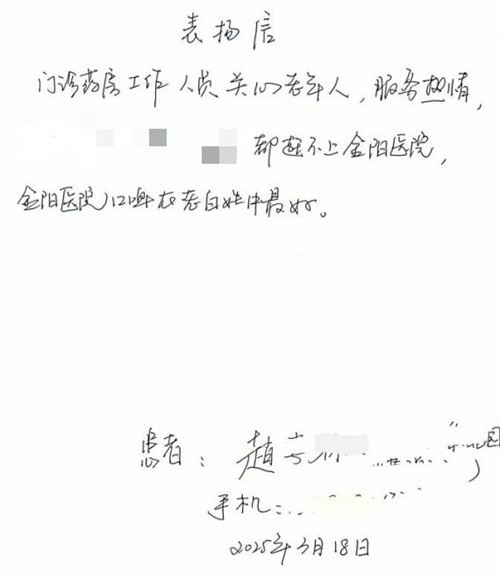 表扬信
门诊药房工作人员关心老年人，服务热情，
都赶不上金阳医院，
金阳医院口啤在老白姓中最好。
患者：赵
手机：
2025年3月18日